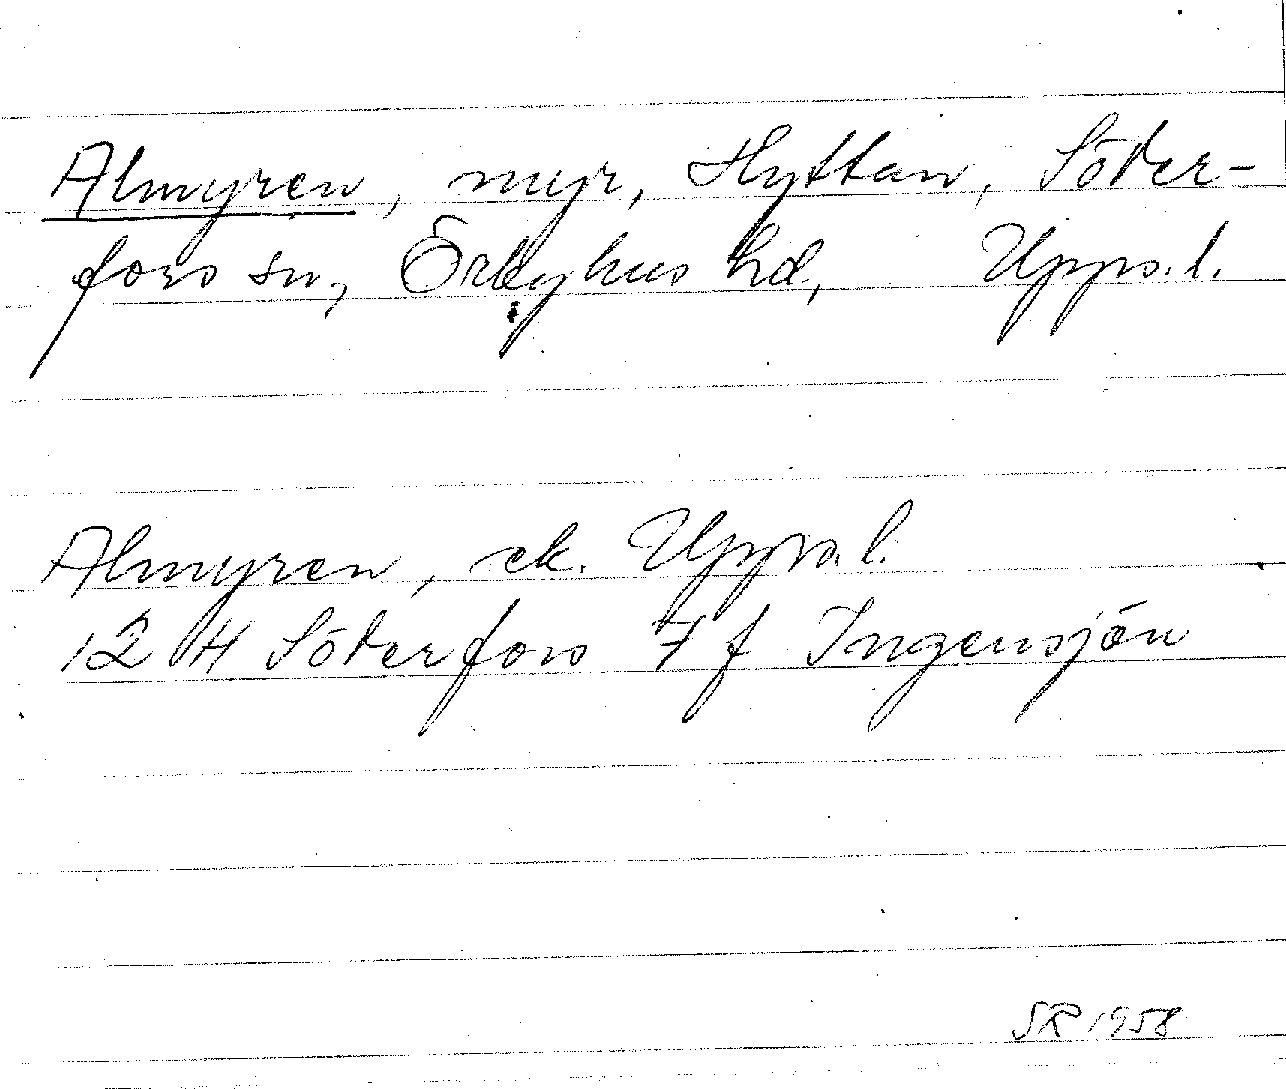 Almyren, myr, Hyttan, Söder-
fors sn, Örbyhus hd, Upps. l.
Almyren, ek. Upps. l.
12 H Söderfors 7 f Ingensjön
SR 1958